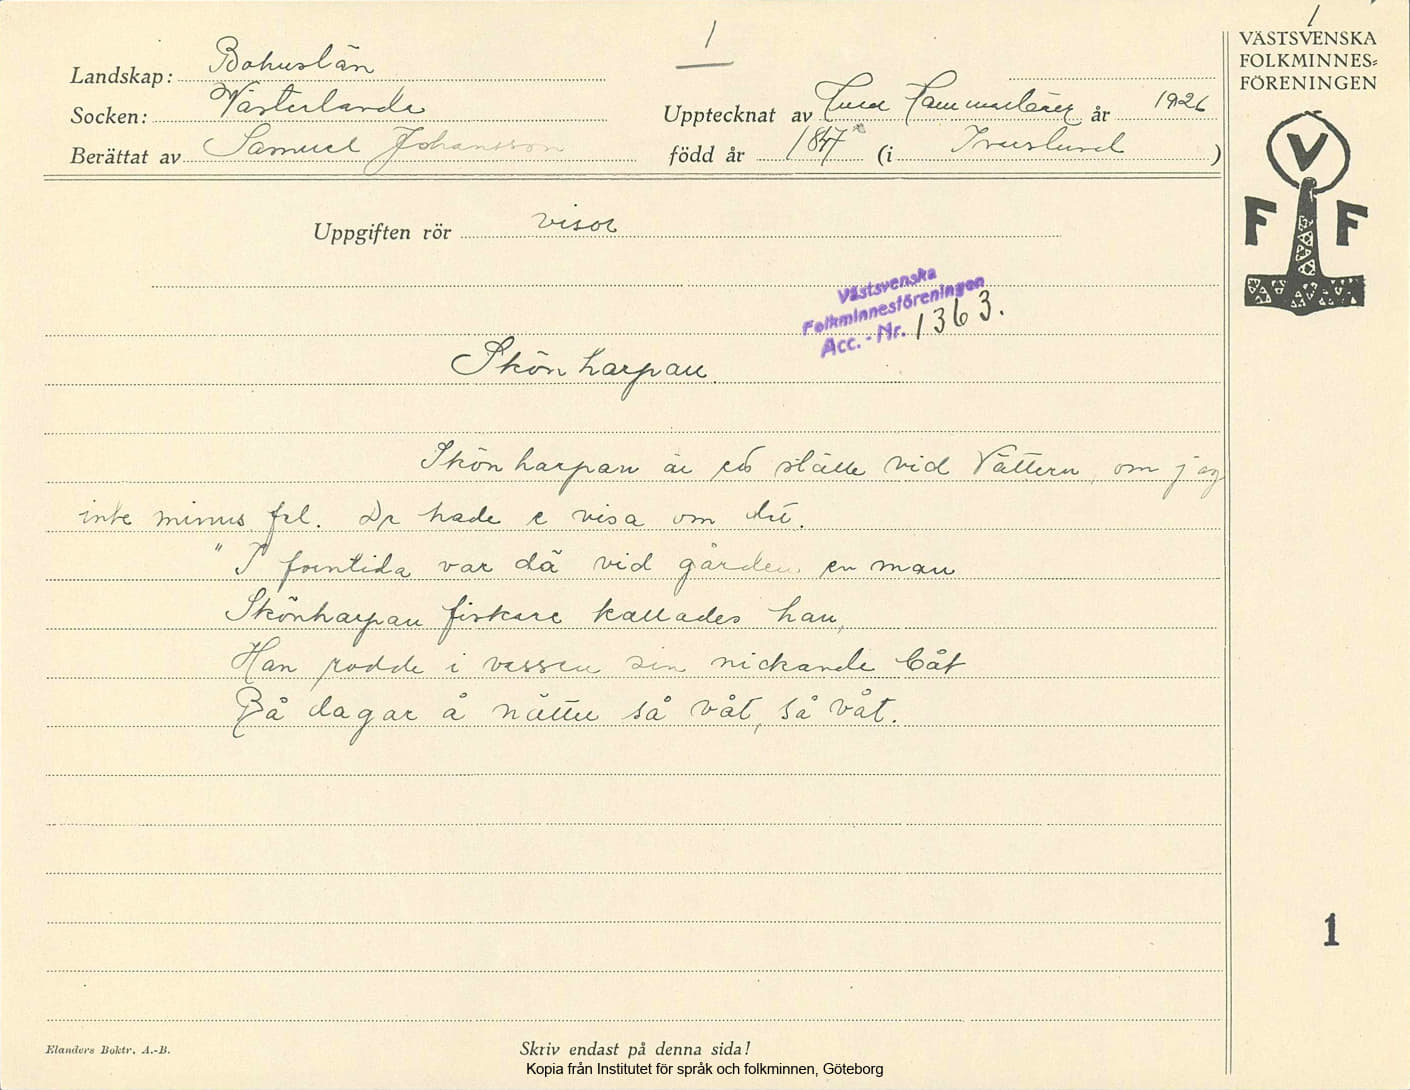 1
1
VÄSTSVENSKA
FOLKMINNES=
FÖRENINGEN
V
F F
Landskap: Bohuslän
Socken: Västerlanda Upptecknat av Hammarlöv år 1926
Berättat av Samuel Johansson född år 1847 (i )
Uppgiften rör visor
Västsvenska
Folkminnesföreningen
Acc. - Nr. 1363.
Skönharpan.
Skönharpan är ett ställe vid Vättern, om jag
inte minns fel. De hade e visa om det.
"I forntida var dä vid gården en man
Skönharpan fiskare kallades han,
Han rodde i vassen sin nickande båt
På dagar å nätter så våt, så våt.
1
Elanders Boktr. A.-B.
Skriv endast på denna sida!
Kopia från Institutet för språk och folkminnen, Göteborg